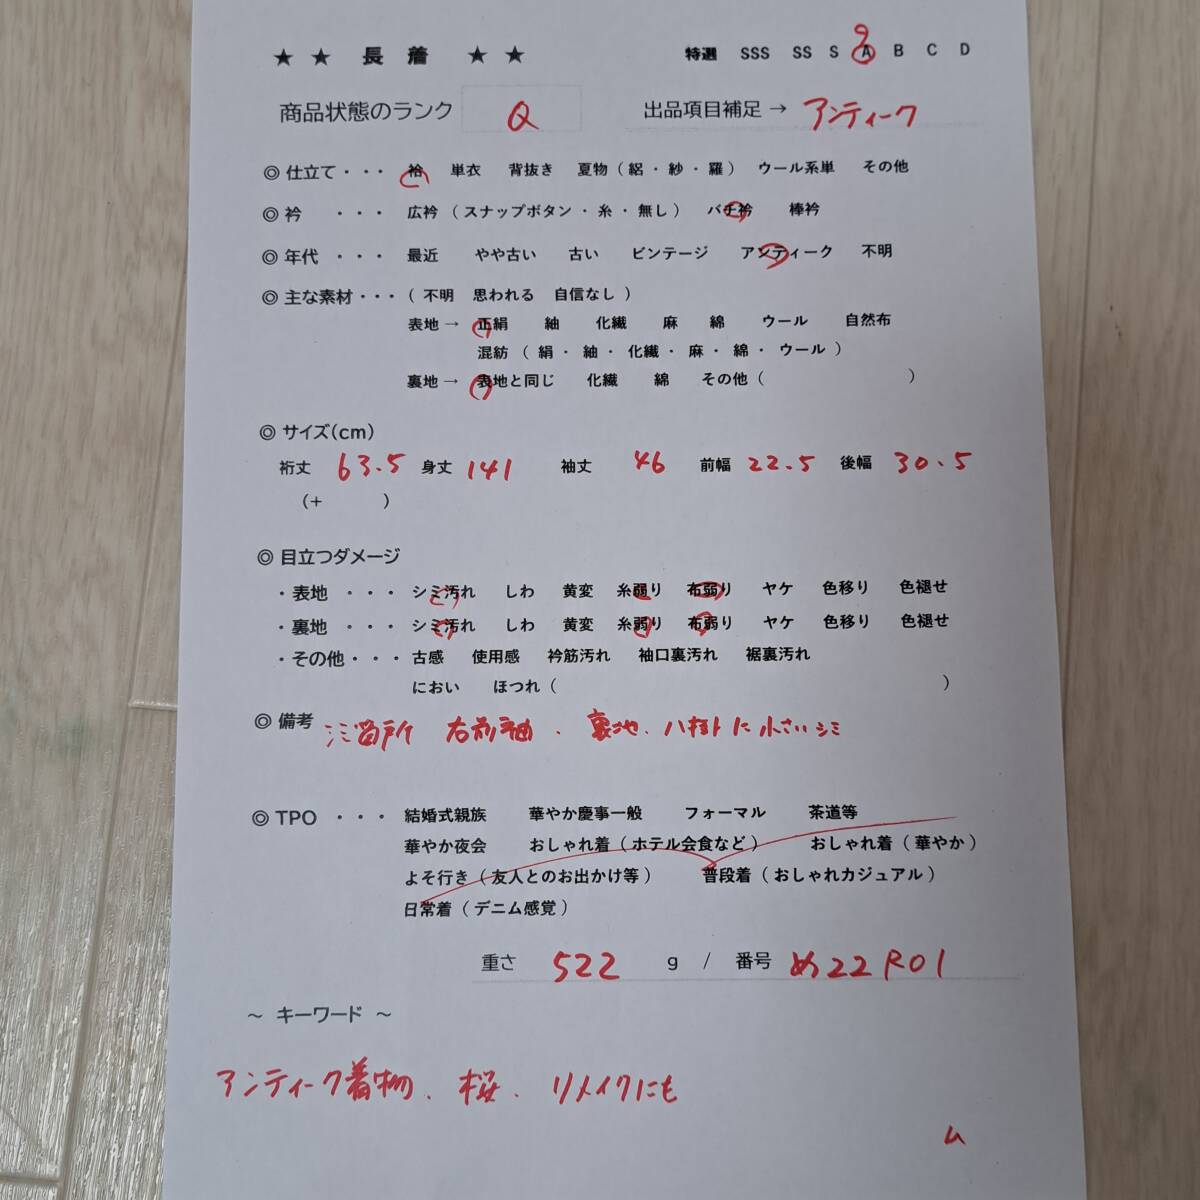 ★ ★ 長 着 ★ ★ 特選 SSS SS S A B C D
商品状態のランク Q 出品項目補足 → アンティーク
◎ 仕立て ・・・ 袷 単衣 背抜き 夏物 ( 絽 ・ 紗 ・ 羅 ) ウール系単 その他
◎ 衿 ・・・ 広衿 ( スナップボタン ・ 糸 ・ 無し ) バチ衿 棒衿
◎ 年代 ・・・ 最近 やや古い 古い ビンテージ アンティーク 不明
◎ 主な素材 ・・・ ( 不明 思われる 自信なし )
表地 → 正絹 紬 化繊 麻 綿 ウール 自然布
混紡 ( 絹 ・ 紬 ・ 化繊 ・ 麻 ・ 綿 ・ ウール )
裏地 → 表地と同じ 化繊 綿 その他 ( )
◎ サイズ(cm)
裄丈 63.5 身丈 141 袖丈 46 前幅 22.5 後幅 30.5
(+ )
◎ 目立つダメージ
・表地 ・・・ シミ汚れ しわ 黄変 糸弱り 布弱り ヤケ 色移り 色褪せ
・裏地 ・・・ シミ汚れ しわ 黄変 糸弱り 布弱り ヤケ 色移り 色褪せ
・その他 ・・・ 古感 使用感 衿筋汚れ 袖口裏汚れ 裾裏汚れ
におい ほつれ ( )
◎ 備考 シミ箇所 右前袖 、 裏地、八掛に小さいシミ
◎ TPO ・・・ 結婚式親族 華やか慶事一般 フォーマル 茶道等
華やか夜会 おしゃれ着 ( ホテル会食など ) おしゃれ着 ( 華やか )
よそ行き ( 友人とのお出かけ等 ) 普段着 ( おしゃれカジュアル )
日常着 ( デニム感覚 )
重さ 522 g / 番号 め22R01
～ キーワード ～
アンティーク着物、桜、リメイクにも
ム